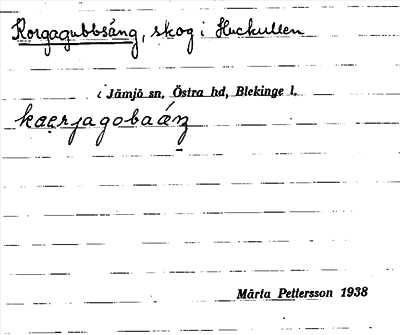 Korgagubbsáng, skog i Huckullen
i Jämjö sn, Östra hd, Blekinge l.
kaerjagobaáŋ
Märta Pettersson 1938